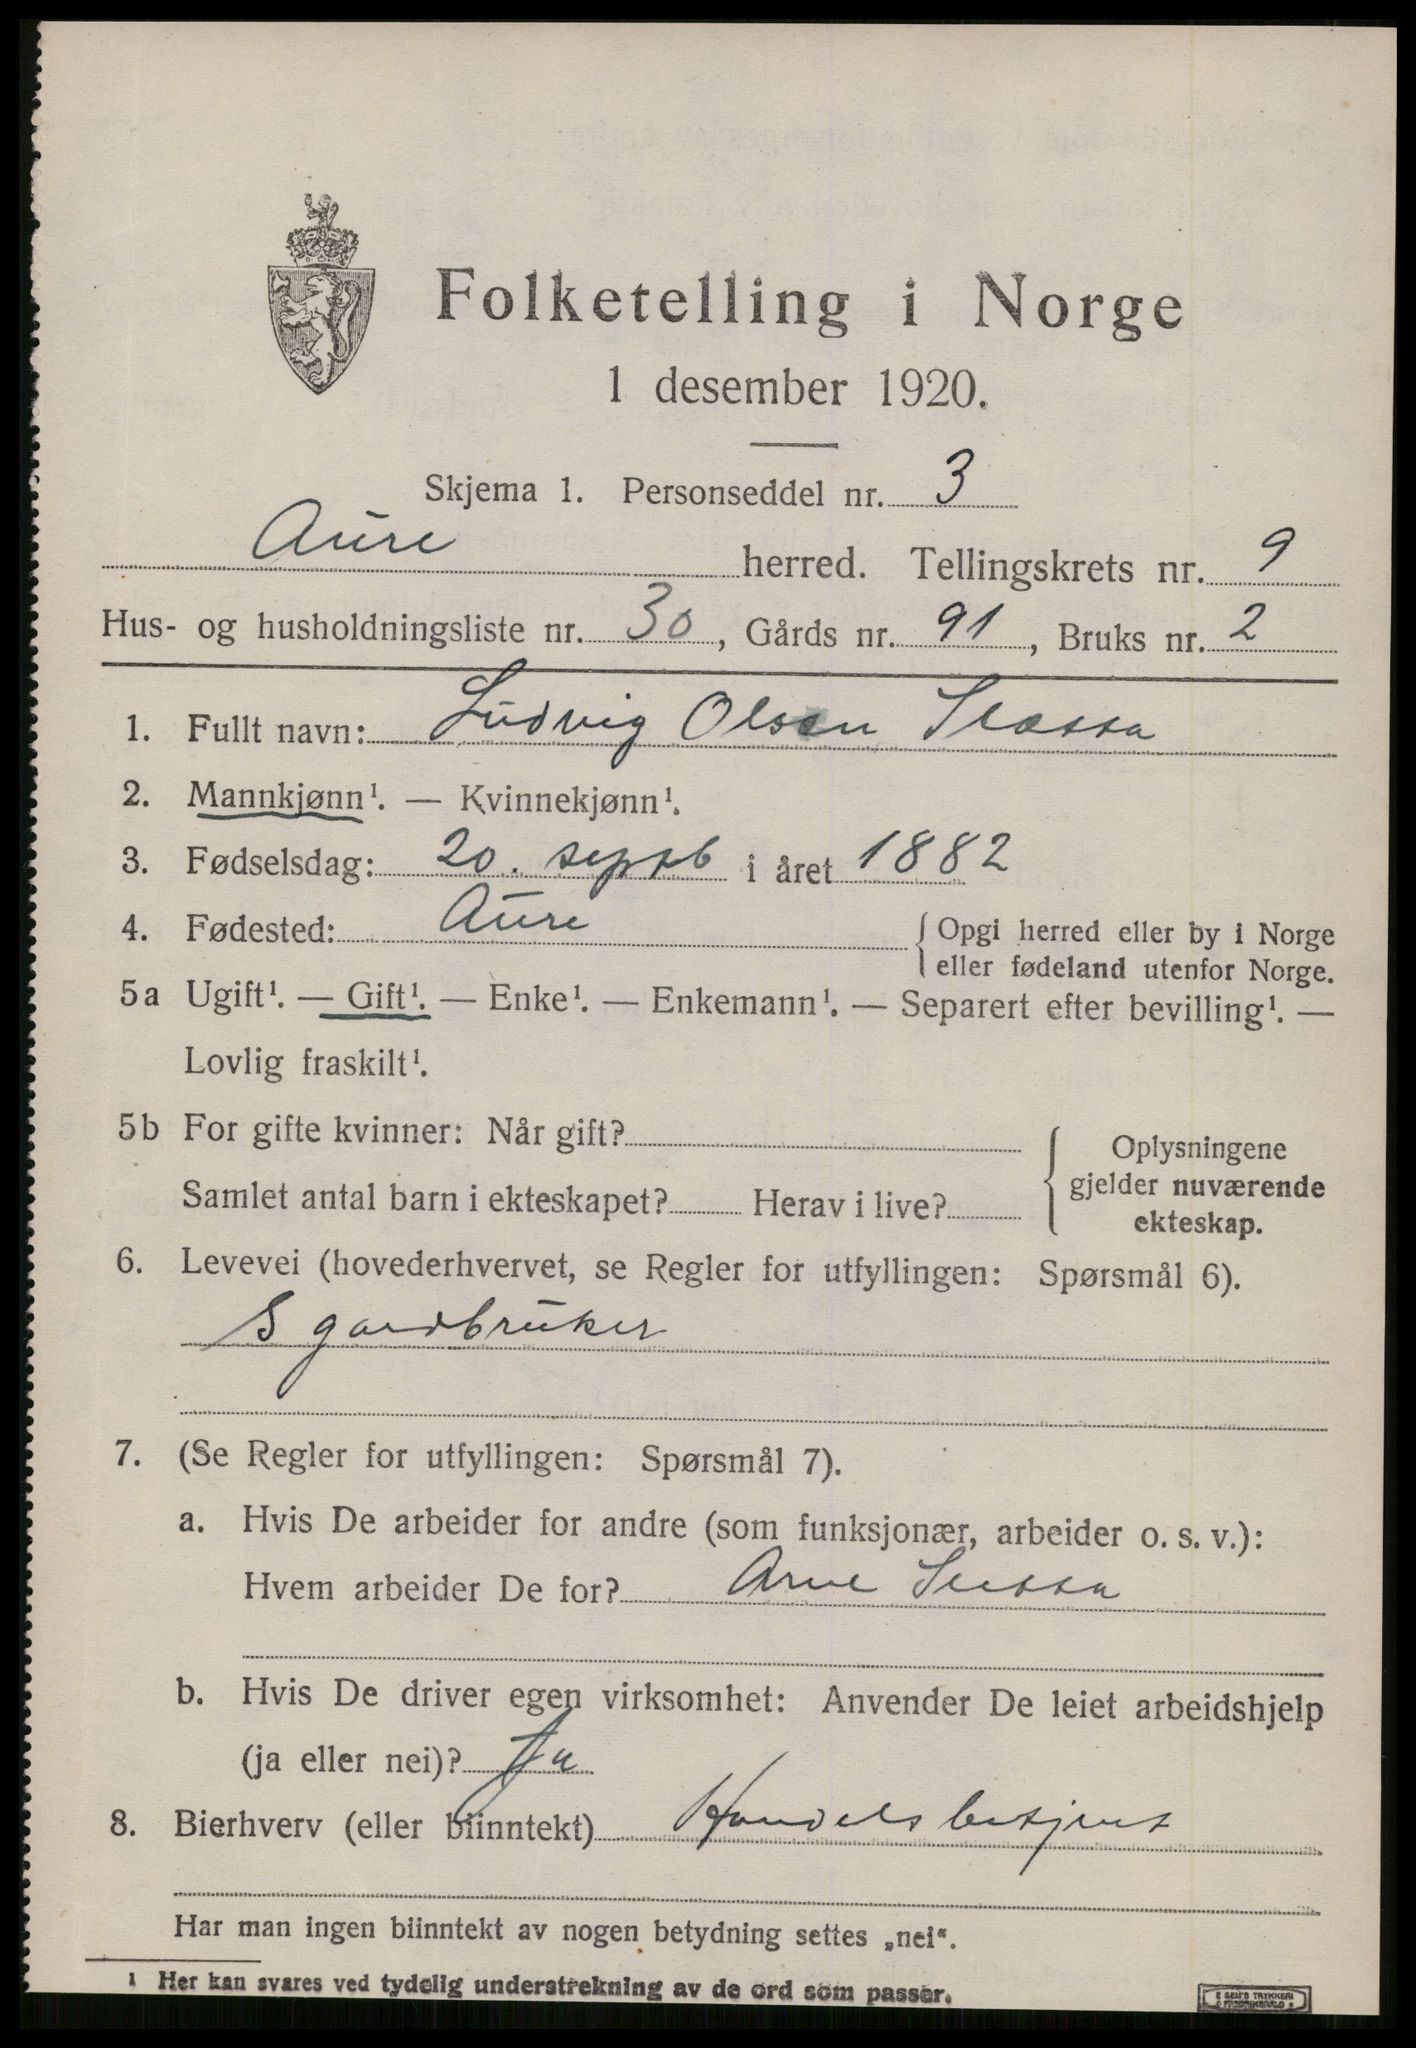 Folketelling i Norge
1 desember 1920.
Skjema 1. Personseddel nr. 3
Aure herred. Tellingskrets nr. 9
Hus- og husholdningsliste nr. 30, Gårds nr. 91, Bruks nr. 2
1. Fullt navn: Ludvig Olsen Slessa
2. Mannkjønn¹. — Kvinnekjønn¹.
3. Fødselsdag: 20. septb i året 1882
4. Fødested: Aure { Opgi herred eller by i Norge
eller fødeland utenfor Norge.
5a Ugift¹. — Gift¹. — Enke¹. — Enkemann¹. — Separert efter bevilling¹. —
Lovlig fraskilt¹.
5b For gifte kvinner: Når gift?
Samlet antal barn i ekteskapet? Herav i live?
{ Oplysningene
gjelder nuværende
ekteskap.
6. Levevei (hovederhvervet, se Regler for utfyllingen: Spørsmål 6).
S gardbruker
7. (Se Regler for utfyllingen: Spørsmål 7).
a. Hvis De arbeider for andre (som funksjonær, arbeider o. s. v.):
Hvem arbeider De for? Arne Slessa
b. Hvis De driver egen virksomhet: Anvender De leiet arbeidshjelp
(ja eller nei)? Ja
8. Bierhverv (eller biinntekt) Handelsbetjent
Har man ingen biinntekt av nogen betydning settes „nei“.
¹ Her kan svares ved tydelig understrekning av de ord som passer.